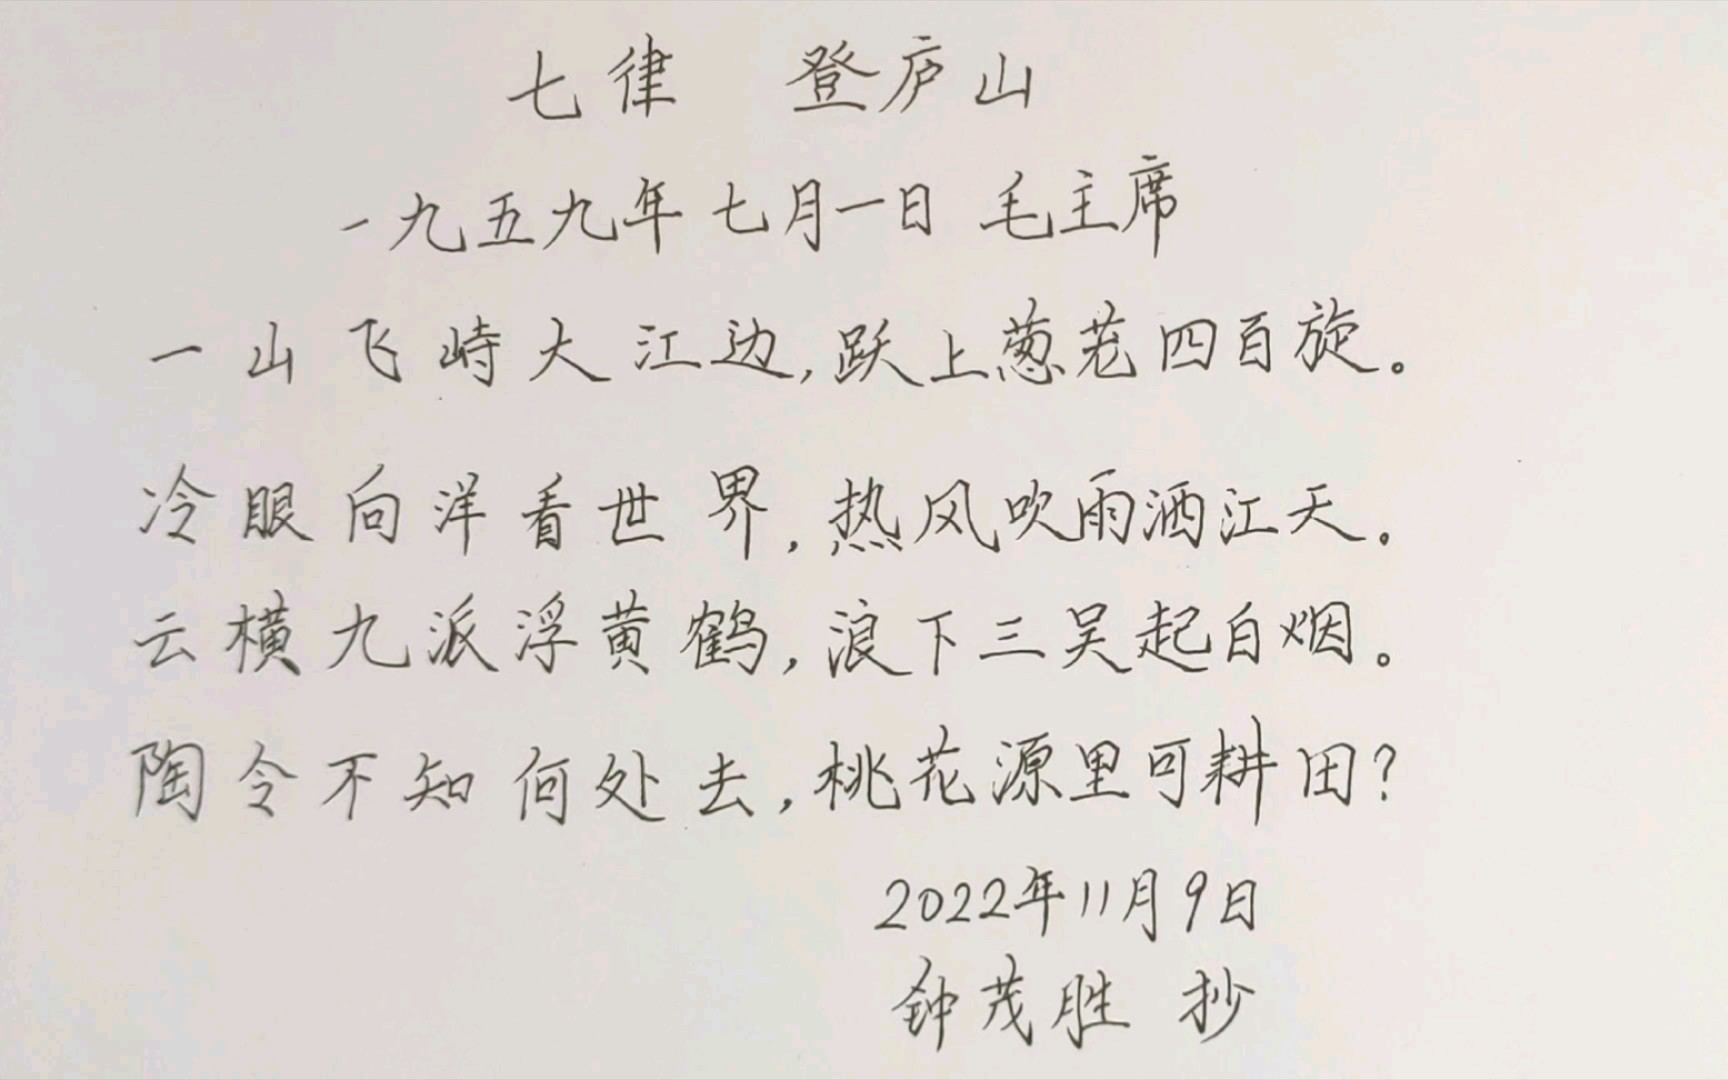 七律 登庐山
一九五九年七月一日 毛主席
一山飞峙大江边,跃上葱茏四百旋。
冷眼向洋看世界,热风吹雨洒江天。
云横九派浮黄鹤,浪下三吴起白烟。
陶令不知何处去,桃花源里可耕田?
2022年11月9日
钟茂胜 抄